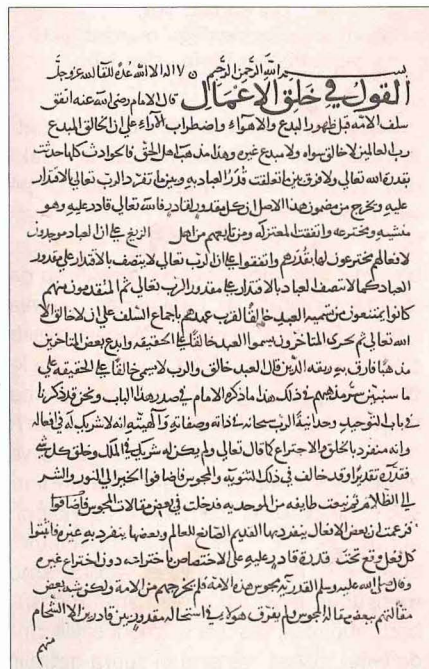 بسم الله الرحمن الرحيم لا اله الا الله عدة للقا الله عز وجل
القول في خلق الاعمال قال الامام رضي الله عنه اتفق
سلف الامة قبل ظهور البدع والاهواء واضطراب الاراء على ان الخالق المبدع
رب العالمين لا خالق سواه ولا مبدع غيره وهذا مذهب اهل الحق فالحوادث كلها حدثت
بقدرة الله تعالى ولا فرق بين ما تعلقت قدر العباد به وبين ما تفرد الرب تعالى بالاقدار
عليه ويخرج من مضمون هذا الاصل ان كل مقدور لقادر فالله تعالى قادر عليه وهو
منشيه ومخترعه واتفقت المعتزلة ومن تابعهم من اهل الزيغ على ان العباد موجدون
لافعالهم مخترعون لها بقدرهم واتفقوا على ان الرب تعالى لا يتصف بالاقتدار على مقدور
العباد كما لا يتصف العباد بالاقتدار على مقدور الرب تعالى ثم المتقدمون منهم
كانوا يمتنعون من تسمية العبد خالقا لقرب عهدهم باجماع السلف على ان لا خالق الا
الله تعالى ثم تجرى المتاخرون فسموا العبد خالقا على الحقيقه وابدع بعض المتاخرين
مذهبا فارق به ربقه الدين فقال العبد خالق والرب لا يسمى خالقا على الحقيقه على
ما سنبين سر مذهبهم في ذلك هذا ما ذكره الامام في صدر هذا الباب ونحن قد ذكرنا
في باب التوحيد وحدانية الرب سبحانه في ذاته وصفاته والهيته وانه لا شريك له في افعاله
وانه منفرد بالخلق والاختراع كما قال تعالى ولم يكن له شريك في الملك وخلق كل شي
فقدره تقديرا وقد خالف في ذلك الثنويه والمجوس فاضافوا الخير الى النور والشر
الى الظلام ثم نبعت طايفه من الموحديه فدخلت في بعض مقالات المجوس فاضافوا
فزعمت ان بعض الافعال ينفرد بها القديم الصانع للعالم وبعضها ينفرد به غيره فاثبتوا
كل فعل وقع تحت قدرة قادر عليه على الاختصاص باختراعه دون اختراع غيره
وقال صلى الله عليه وسلم القدرية مجوس هذه الامة فلم يخرجهم من الامة ولكن شبه بعض
مقالتهم ببعض مقالة المجوس ولم يفرق هولاء في استحاله مقدور بين قادرين الا الشحام
منهم